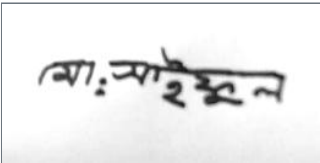 মোঃ সাইফুল